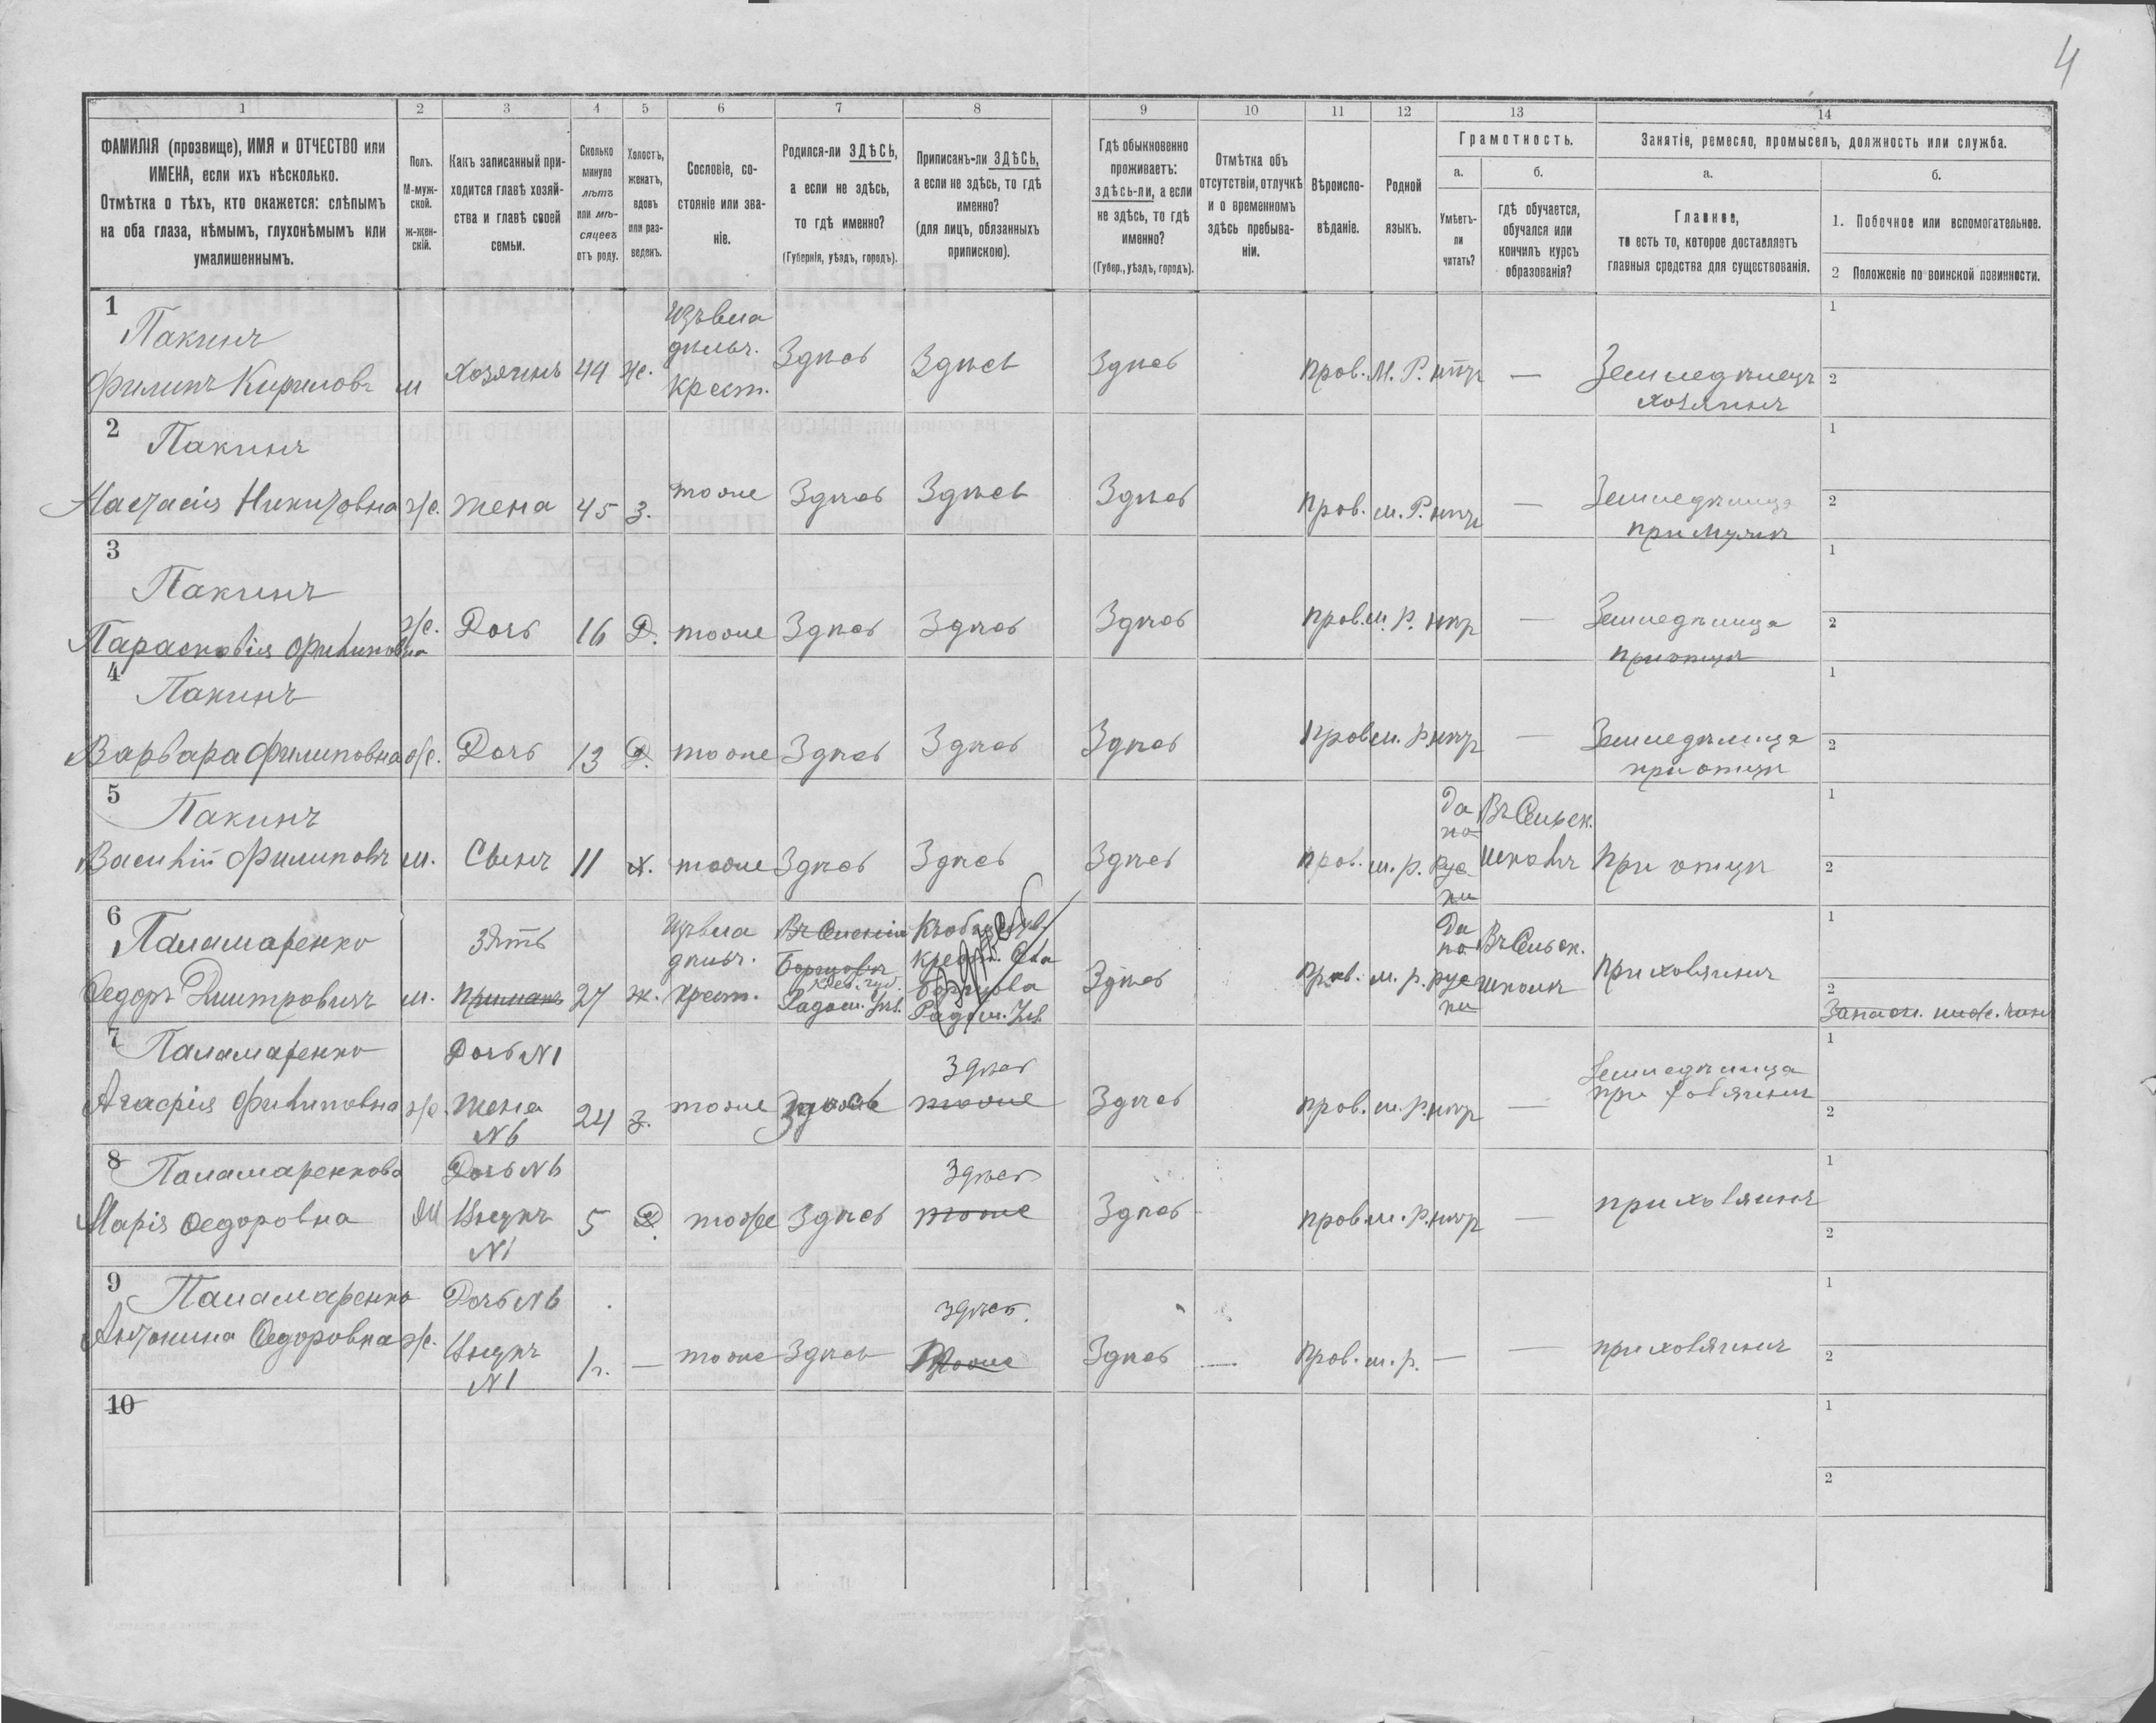 4
1 2 3 4 5 6 7 8 9 10 11 12 13 14
ФАМИЛІЯ (прозвище), ИМЯ и ОТЧЕСТВО или
ИМЕНА, если ихъ нѣсколько.
Отмѣтка о тѣхъ, кто окажется: слѣпымъ
на оба глаза, нѣмымъ, глухонѣмымъ или
умалишеннымъ.
Полъ.
М-муж-
ской.
ж-жен-
скій.
Какъ записанный при-
ходится главѣ хозяй-
ства и главѣ своей
семьи.
Сколько
минуло
лѣтъ
или мѣ-
сяцевъ
отъ роду.
Холостъ,
женатъ,
вдовъ
или раз-
веденъ.
Сословіе, со-
стояніе или зва-
ніе.
Родился-ли ЗДѢСЬ,
а если не здѣсь,
то гдѣ именно?
(Губернія, уѣздъ, городъ).
Приписанъ-ли ЗДѢСЬ,
а если не здѣсь, то гдѣ
именно?
(для лицъ, обязанныхъ
припискою).
Гдѣ обыкновенно
проживаетъ:
здѣсь-ли, а если
не здѣсь, то гдѣ
именно?
(Губер., уѣздъ, городъ).
Отмѣтка объ
отсутствіи, отлучкѣ
и о временномъ
здѣсь пребыва-
ніи.
Вѣроиспо-
вѣданіе.
Родной
языкъ.
Грамотность.
а.
Умѣетъ-
ли
читать?
б.
гдѣ обучается,
обучался или
кончилъ курсъ
образованія?
Занятіе, ремесло, промыселъ, должность или служба.
а.
Главное,
то есть то, которое доставляетъ
главныя средства для существованія.
б.
1. Побочное или вспомогательное.
2 Положеніе по воинской повинности.
1
Пакинъ
Филипъ Кирилов
м
Хозяинъ
44
ж.
Изъ вла
дѣльч.
крест.
Здѣсь
Здѣсь
Здѣсь
прав.
М. Р.
нѣтъ
—
Земледѣлецъ
хозяинъ
1
2
2
Пакинъ
Настасія Никитовна
ж.
жена
45
з.
тоже
Здѣсь
Здѣсь
Здѣсь
прав.
м. Р.
нѣтъ
—
Земледѣлица
при мужѣ
1
2
3
Пакинъ
Парасковія Филиповна
ж.
Дочь
16
Д.
тоже
Здѣсь
Здѣсь
Здѣсь
прав.
м. Р.
нѣт
—
Земледѣлица
при отцѣ
1
2
4
Пакинъ
Варвара Филиповна
ж.
Дочь
13
Д.
тоже
Здѣсь
Здѣсь
Здѣсь
прав
м. р.
нѣт
—
Земледѣлица
при отцѣ
1
2
5
Пакинъ
Василій Филиповъ
м.
Сынъ
11
х.
тоже
Здѣсь
Здѣсь
Здѣсь
прав.
м. р.
Да
по
рус
ки
Въ Сельск.
школѣ
При отцѣ
1
2
6
Паламаренко
Федоръ Дмитровичъ
м.
Зять
Примакъ
27
ж.
Изъ вла
дѣльч.
крест.
Въ Селеніи
Кіев. губ.
Радом. уѣз.
Радом. Уѣз.
Здѣсь
Здѣсь
прав.
м. р.
Да
по
рус
ки
Въ Сельск.
школѣ
при хозяинѣ
1
2
Запасн. ниж. чинъ
7
Паламаренко
Агафія Филиповна
ж.
Дочь N1
жена
N6
24
з.
тоже
Здѣсь
Здѣсь
тоже
Здѣсь
прав.
м. р.
нѣт
—
Земледѣлица
при хозяинѣ
1
2
8
Паламаренкова
Марія Федоровна
Дочь N6
Внука
N1
5
Д.
тоже
Здѣсь
Здѣсь
тоже
Здѣсь
прав
м. р.
нѣт
—
при хозяинѣ
1
2
9
Паламаренко
Антонина Федоровна
ж.
Дочь N6
Внука
N1
1 г.
—
тоже
Здѣсь
здѣсь
тоже
Здѣсь
—
прав.
м. р.
—
—
при хозяинѣ
1
2
10
1
2